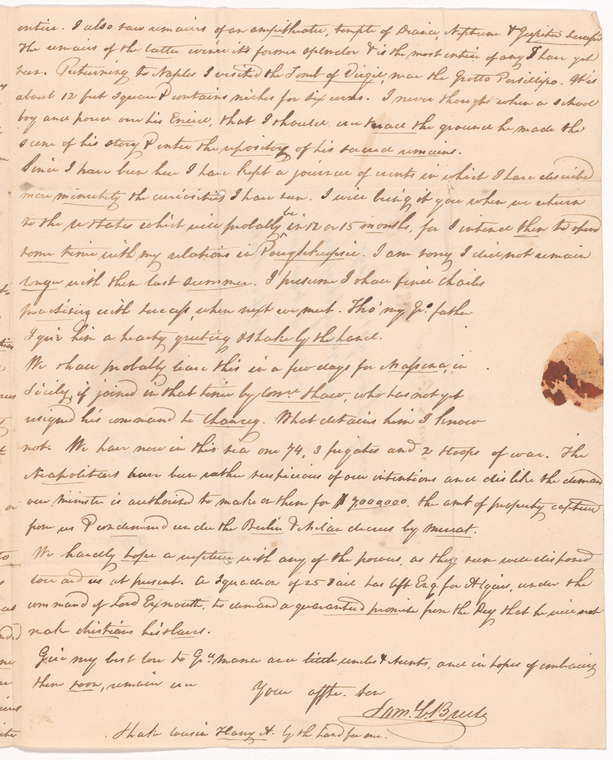 entire. I also saw remains of an ampitheatre, temple of Diana, Neptune & Jupiter Serapis
The remains of the latter evince its former splendor & is the most entire of any I have yet
seen. Returning to Naples I visited the Tomb of Virgil near the Grotto Porsillipo. It is
about 12 feet square & contains niches for six urns. I never thought when a school
boy and pored over his Eneid, that I should ever tread the ground he made the
scene of his story & enter the repository of his sacred remains.
Since I have been here I have kept a journal of events in which I have described
more minutely the curiosities I have seen. I will bring it you when we return
to the U States which will probably be in 12 or 15 months, for I intend then to spend
some time with my relations in Poughkeepsie. I am sorry I did not remain
longer with them last summer. I presume I shall find Charles
practising with success, when next we meet. Tho' my Gd. father
I give him a hearty greeting & shake by the hand.
We shall probably leave this in a few days for Messina, in
Sicily, if joined in that time by Comre. Shaw, who has not yet
resigned his command to Chauncy. What detains him I know
not. We have now in this sea one 74, 3 frigates and 2 sloops of war. The
Neapolitans have been rather suspicious of our intentions and dislike the demand
our Minister is authorised to make on them for $7000000. the amt of property captured
from us & condemned under the Berlin & Milan decrees by Murat.
We hardly hope a rupture with any of the powers, as they seem well disposed
toward us at present. A Squadron of 25 Sail has left Eng. for Algiers, under the
command of Lord Exmouth, to demand a guaranteed promise from the Dey that he will not
make christians his slaves.
Give my best love to Gd. Mama and little uncles & Aunts, and in hopes of embracing
them soon, remain ever
Your affte. son
Saml. L. Breese
Shake cousin Henry A. by the hand for me.